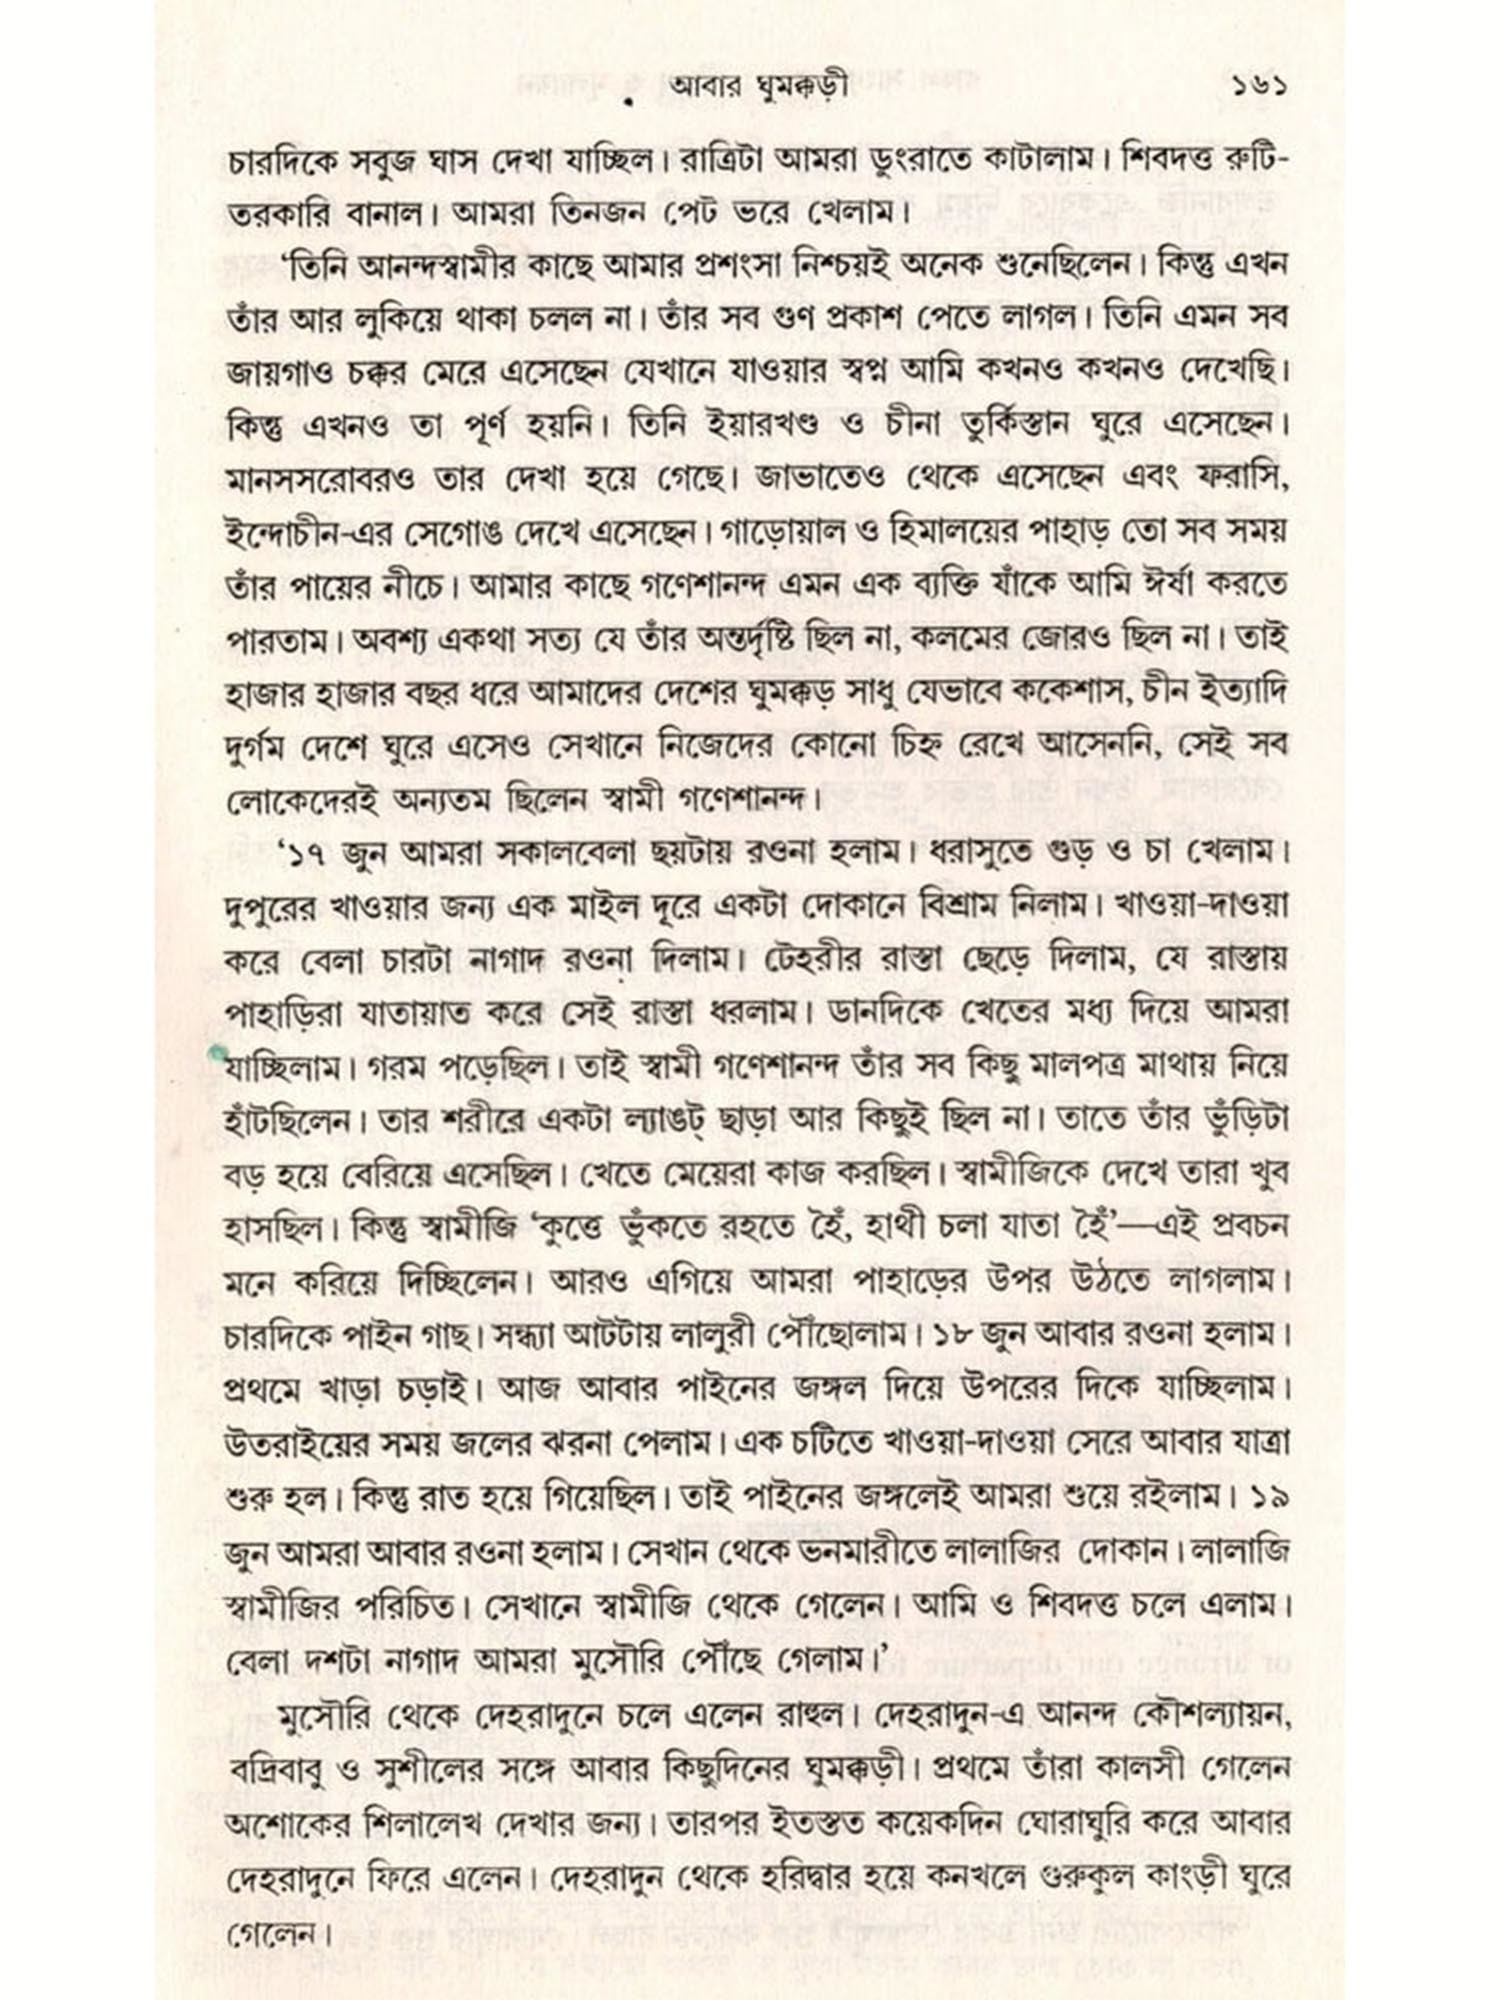 আবার ঘুমক্কড়ী ১৬১
চারদিকে সবুজ ঘাস দেখা যাচ্ছিল। রাত্রিটা আমরা ডুংরাতে কাটালাম। শিবদত্ত রুটি-
তরকারি বানাল। আমরা তিনজন পেট ভরে খেলাম।
‘তিনি আনন্দস্বামীর কাছে আমার প্রশংসা নিশ্চয়ই অনেক শুনেছিলেন। কিন্তু এখন
তাঁর আর লুকিয়ে থাকা চলল না। তাঁর সব গুণ প্রকাশ পেতে লাগল। তিনি এমন সব
জায়গাও চক্কর মেরে এসেছেন যেখানে যাওয়ার স্বপ্ন আমি কখনও কখনও দেখেছি।
কিন্তু এখনও তা পূর্ণ হয়নি। তিনি ইয়ারখণ্ড ও চীনা তুর্কিস্তান ঘুরে এসেছেন।
মানসসরোবরও তার দেখা হয়ে গেছে। জাভাতেও থেকে এসেছেন এবং ফরাসি,
ইন্দোচীন-এর সেগোঙ দেখে এসেছেন। গাড়োয়াল ও হিমালয়ের পাহাড় তো সব সময়
তাঁর পায়ের নীচে। আমার কাছে গণেশানন্দ এমন এক ব্যক্তি যাঁকে আমি ঈর্ষা করতে
পারতাম। অবশ্য একথা সত্য যে তাঁর অন্তর্দৃষ্টি ছিল না, কলমের জোরও ছিল না। তাই
হাজার হাজার বছর ধরে আমাদের দেশের ঘুমক্কড় সাধু যেভাবে ককেশাস, চীন ইত্যাদি
দুর্গম দেশে ঘুরে এসেও সেখানে নিজেদের কোনো চিহ্ন রেখে আসেননি, সেই সব
লোকেদেরই অন্যতম ছিলেন স্বামী গণেশানন্দ।
‘১৭ জুন আমরা সকালবেলা ছয়টায় রওনা হলাম। ধরাসুতে গুড় ও চা খেলাম।
দুপুরের খাওয়ার জন্য এক মাইল দূরে একটা দোকানে বিশ্রাম নিলাম। খাওয়া-দাওয়া
করে বেলা চারটা নাগাদ রওনা দিলাম। টেহরীর রাস্তা ছেড়ে দিলাম, যে রাস্তায়
পাহাড়িরা যাতায়াত করে সেই রাস্তা ধরলাম। ডানদিকে খেতের মধ্য দিয়ে আমরা
যাচ্ছিলাম। গরম পড়েছিল। তাই স্বামী গণেশানন্দ তাঁর সব কিছু মালপত্র মাথায় নিয়ে
হাঁটছিলেন। তার শরীরে একটা ল্যাঙট্ ছাড়া আর কিছুই ছিল না। তাতে তাঁর ভুঁড়িটা
বড় হয়ে বেরিয়ে এসেছিল। খেতে মেয়েরা কাজ করছিল। স্বামীজিকে দেখে তারা খুব
হাসছিল। কিন্তু স্বামীজি ‘কুত্তে ভুঁকতে রহতে হৈঁ, হাথী চলা যাতা হৈঁ’—এই প্রবচন
মনে করিয়ে দিচ্ছিলেন। আরও এগিয়ে আমরা পাহাড়ের উপর উঠতে লাগলাম।
চারদিকে পাইন গাছ। সন্ধ্যা আটটায় লালুরী পৌঁছোলাম। ১৮ জুন আবার রওনা হলাম।
প্রথমে খাড়া চড়াই। আজ আবার পাইনের জঙ্গল দিয়ে উপরের দিকে যাচ্ছিলাম।
উতরাইয়ের সময় জলের ঝরনা পেলাম। এক চটিতে খাওয়া-দাওয়া সেরে আবার যাত্রা
শুরু হল। কিন্তু রাত হয়ে গিয়েছিল। তাই পাইনের জঙ্গলেই আমরা শুয়ে রইলাম। ১৯
জুন আমরা আবার রওনা হলাম। সেখান থেকে ভনমারীতে লালাজির দোকান। লালাজি
স্বামীজির পরিচিত। সেখানে স্বামীজি থেকে গেলেন। আমি ও শিবদত্ত চলে এলাম।
বেলা দশটা নাগাদ আমরা মুসৌরি পৌঁছে গেলাম।’
মুসৌরি থেকে দেহরাদুনে চলে এলেন রাহুল। দেহরাদুন-এ আনন্দ কৌশল্যায়ন,
বদ্রিবাবু ও সুশীলের সঙ্গে আবার কিছুদিনের ঘুমক্কড়ী। প্রথমে তাঁরা কালসী গেলেন
অশোকের শিলালেখ দেখার জন্য। তারপর ইতস্তত কয়েকদিন ঘোরাঘুরি করে আবার
দেহরাদুনে ফিরে এলেন। দেহরাদুন থেকে হরিদ্বার হয়ে কনখলে গুরুকুল কাংড়ী ঘুরে
গেলেন।